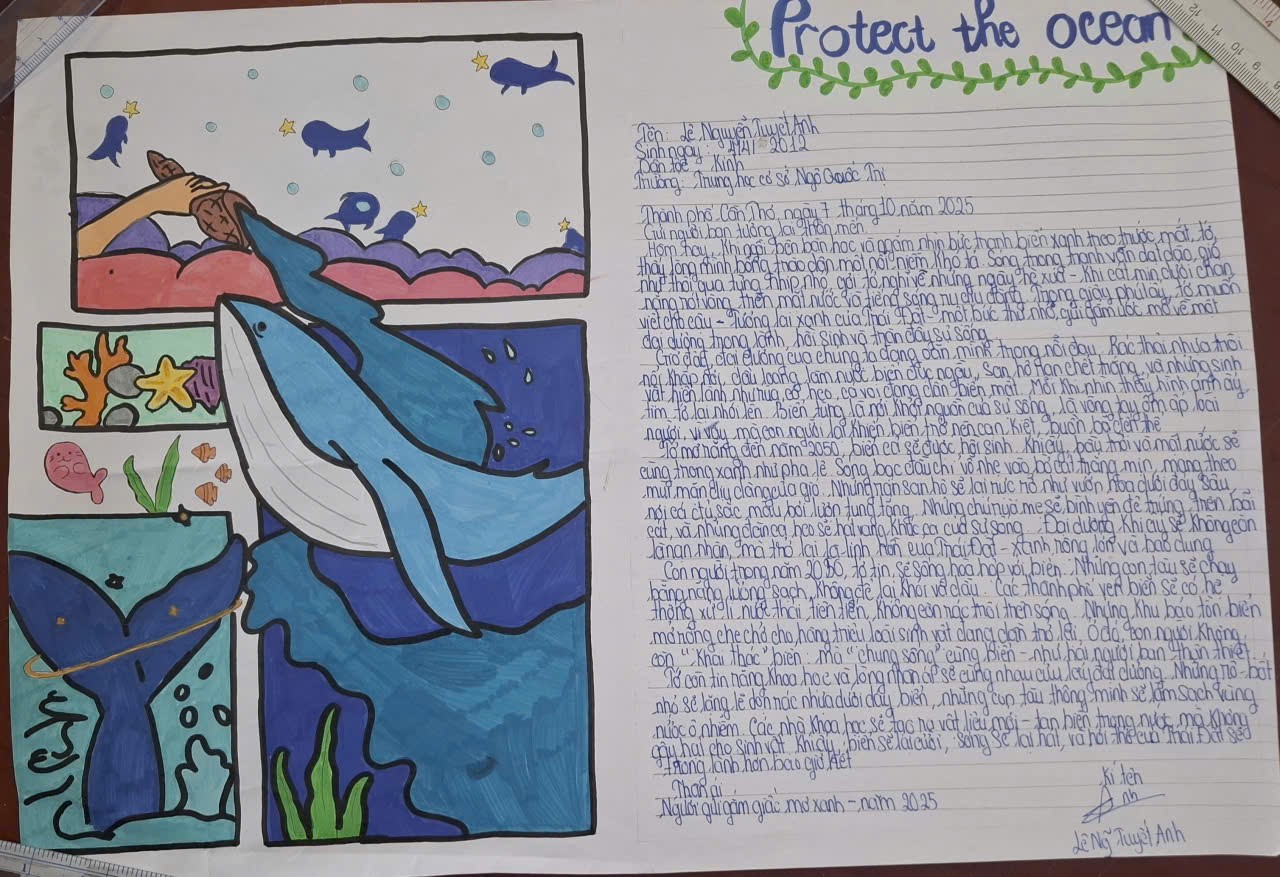 Protect the ocean
Tên: Lê Nguyễn Tuyết Anh
Sinh ngày: 2012
Dân tộc: Kinh
Trường: Trung học cơ sở Ngô Quốc Trị
Thành phố Cần Thơ, ngày 7 tháng 10 năm 2025
Gửi người bạn tương lai thân mến.
Hôm nay, khi ngồi bên bàn học và ngắm nhìn bức tranh biển xanh treo trước mắt, tớ
thấy lòng mình bỗng trào dân một nỗi niềm khó tả. Sóng trong tranh vẫn dạt dào, gió
như thổi qua từng nhịp nhỏ, gợi tớ nghĩ về những ngày hè xưa - khi cát mịn dưới chân
nắng rơi vàng trên mặt nước và tiếng sóng ru dịu động. Trong giây phút ấy, tớ muốn
viết cho cậu - Tương lai xanh của Trái Đất - một bức thư nhỏ, gửi gắm ước mơ về một
đại dương trong lành, hồi sinh và tràn đầy sự sống.
Giờ đây, đại dương của chúng ta đang oằn mình trong nỗi đau. Rác thải nhựa trôi
nổi khắp nơi, dầu loang làm nước biển đục ngầu, san hô dần chết trắng, và những sinh
vật hiền lành như rùa, cá heo, cá voi đang dần biến mất. Mỗi khi nhìn thấy hình ảnh ấy
tim tớ lại nhói lên. Biển từng là nơi khởi nguồn của sự sống, là vòng tay ấm áp loài
người, vì vậy mà con người lại khiến biển trở nên cạn kiệt, buồn bã đến thế
Tớ mơ rằng đến năm 2050, biển cả sẽ được hồi sinh. Khi ấy, bầu trời và mặt nước sẽ
cùng trong xanh như pha lê. Sóng bạc đầu chỉ vỗ nhẹ vào bờ cát trắng mịn, mang theo
mùi mặn dịu dàng của gió. Những rạn san hô sẽ lại rực rỡ như vườn hoa dưới đáy sâu
nơi cá đủ sắc màu bơi lượn tung tăng. Những chú rùa mẹ sẽ bình yên đẻ trứng trên bãi
cát, và những đàn cá heo sẽ hát vang khúc ca của sự sống. Đại dương khi ấy sẽ không còn
là nạn nhân, mà trở lại là linh hồn của Trái Đất - xanh, rộng lớn và bao dung
Con người trong năm 2050, tớ tin, sẽ sống hoà hợp với biển. Những con tàu sẽ chạy
bằng năng lượng sạch, không để lại khói về dầu. Các thành phố ven biển sẽ có hệ
thống xử lí nước thải tiên tiến, không còn rác trôi trên sóng. Những khu bảo tồn biển
mở rộng che chở cho hàng triệu loài sinh vật đang dần trở lại. Ở đó, con người không
còn "khai thác" biển mà "chung sống" cùng biển - như hai người bạn thân thiết
Tớ còn tin rằng, khoa học và lòng nhân ái sẽ cùng nhau cứu lấy đại dương. Những rô-bốt
nhỏ sẽ lặng lẽ dọn rác nhựa dưới đáy biển, những con tàu thông minh sẽ làm sạch vùng
nước ô nhiễm. Các nhà khoa học sẽ tạo ra vật liệu mới - tan biến trong nước mà không
gây hại cho sinh vật. Khi ấy, biển sẽ lại cười, sóng sẽ lại hát, và hơi thở của Trái Đất sẽ
trong lành hơn bao giờ hết
Thân ái
Người gửi gắm giấc mơ xanh - năm 2025
Kí tên
Anh
Lê Ng Tuyết Anh